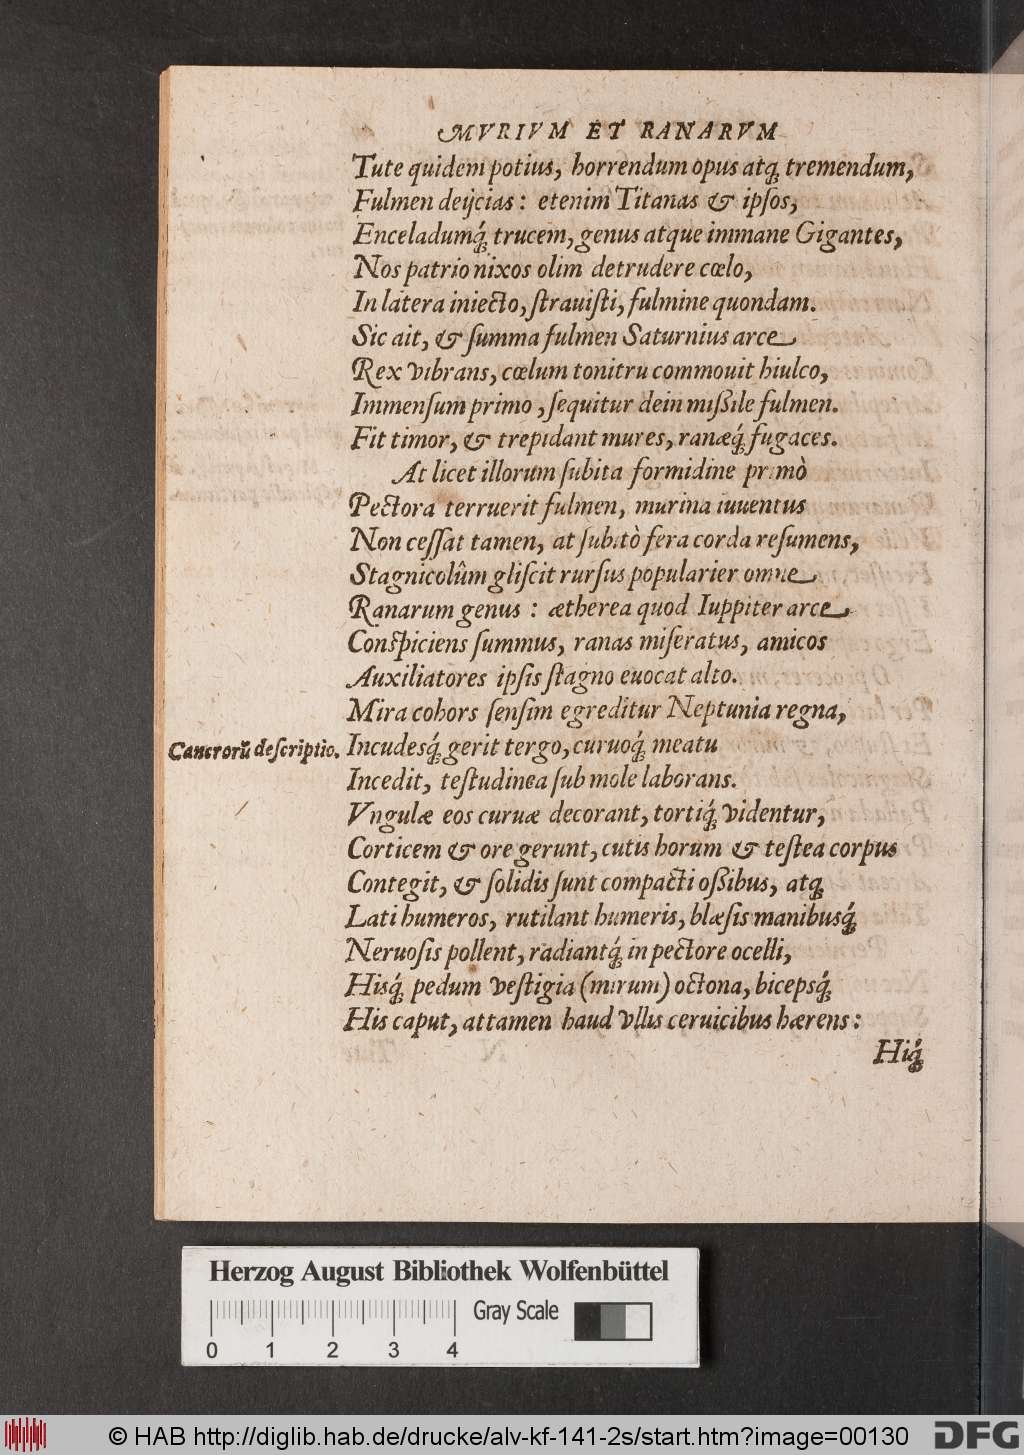 MVRIVM ET RANARVM
Tute quidem potius, horrendum opus atq́; tremendum,
Fulmen deijcias: etenim Titanas & ipſos,
Enceladumq́; trucem, genus atque immane Gigantes,
Nos patrio nixos olim detrudere cœlo,
In latera iniecto, ſtrauiſti, fulmine quondam.
Sic ait, & ſumma fulmen Saturnius arce
Rex vibrans, cœlum tonitru commouit hiulco,
Immenſum primo, ſequitur dein miſsile fulmen.
Fit timor, & trepidant mures, ranæq́; fugaces.
At licet illorum ſubita formidine primò
Pectora terruerit fulmen, murina iuuentus
Non ceſſat tamen, at ſubitò fera corda reſumens,
Stagnicolûm gliſcit rurſus popularier omne
Ranarum genus: ætherea quod Iuppiter arce
Conſpiciens ſummus, ranas miſeratus, amicos
Auxiliatores ipſis ſtagno euocat alto.
Mira cohors ſenſim egreditur Neptunia regna,
Cancrorũ deſcriptio. Incudesq́; gerit tergo, curuoq́; meatu
Incedit, teſtudinea ſub mole laborans.
Vngulæ eos curuæ decorant, tortiq́; videntur,
Corticem & ore gerunt, cutis horum & teſtea corpus
Contegit, & ſolidis ſunt compacti oſsibus, atq;
Lati humeros, rutilant humeris, blæſis manibusq́;
Neruoſis pollent, radiantq́; in pectore ocelli,
Hisq́; pedum veſtigia (mirum) octona, bicepsq́;
His caput, attamen haud vllis ceruicibus hærens:
Hiq́;
Herzog August Bibliothek Wolfenbüttel
Gray Scale
0 1 2 3 4
© HAB http://diglib.hab.de/drucke/alv-kf-141-2s/start.htm?image=00130
DFG